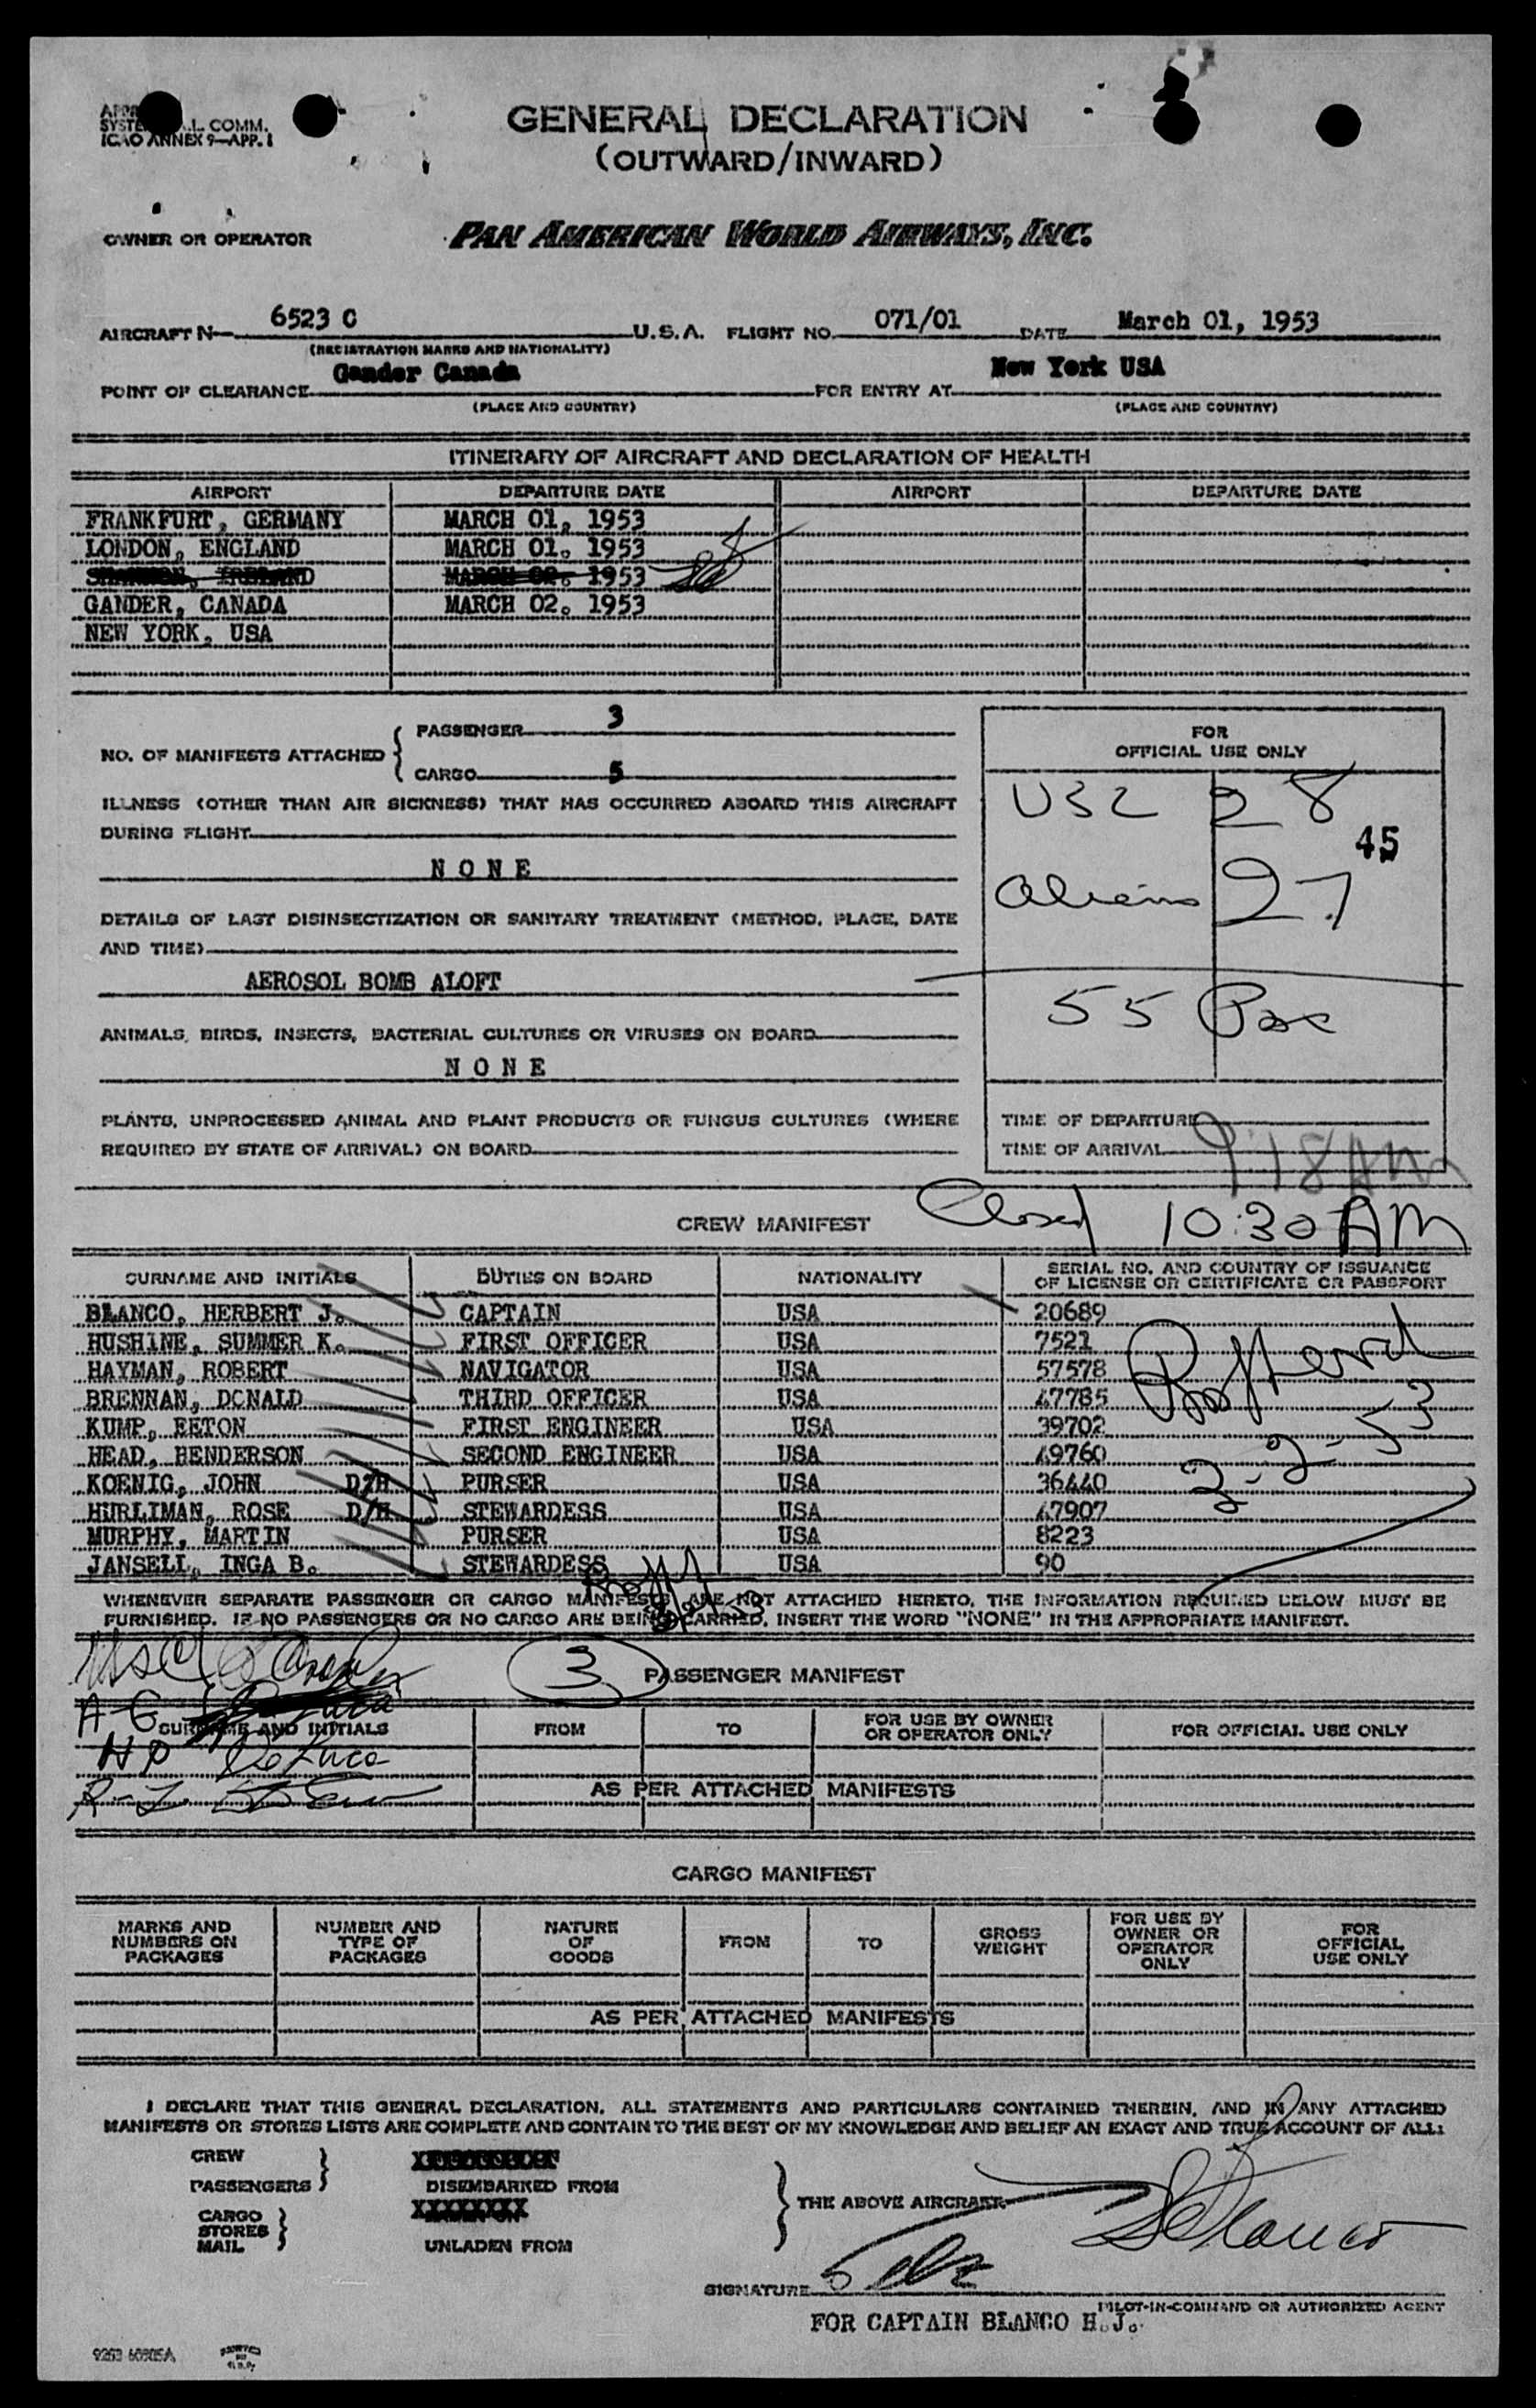 GENERAL DECLARATION
(OUTWARD/INWARD)
L. COMM.
ICAO ANNEX 9—APP. 1
OWNER OR OPERATOR PAN AMERICAN WORLD AIRWAYS, INC.
AIRCRAFT N— 6523 C U.S.A. FLIGHT NO. 071/01 DATE March 01, 1953
(REGISTRATION MARKS AND NATIONALITY)
POINT OF CLEARANCE Gander Canada FOR ENTRY AT New York USA
(PLACE AND COUNTRY) (PLACE AND COUNTRY)
ITINERARY OF AIRCRAFT AND DECLARATION OF HEALTH
AIRPORT DEPARTURE DATE AIRPORT DEPARTURE DATE
FRANKFURT, GERMANY MARCH 01, 1953
LONDON, ENGLAND MARCH 01. 1953
SHANNON, IRELAND MARCH 02. 1953
GANDER, CANADA MARCH 02. 1953
NEW YORK, USA
NO. OF MANIFESTS ATTACHED
PASSENGER 3
CARGO 5
ILLNESS (OTHER THAN AIR SICKNESS) THAT HAS OCCURRED ABOARD THIS AIRCRAFT
DURING FLIGHT
NONE
DETAILS OF LAST DISINSECTIZATION OR SANITARY TREATMENT (METHOD, PLACE, DATE
AND TIME)
AEROSOL BOMB ALOFT
ANIMALS, BIRDS, INSECTS, BACTERIAL CULTURES OR VIRUSES ON BOARD
NONE
PLANTS, UNPROCESSED ANIMAL AND PLANT PRODUCTS OR FUNGUS CULTURES (WHERE
REQUIRED BY STATE OF ARRIVAL) ON BOARD
FOR
OFFICIAL USE ONLY
USC 28
45
Aliens 27
55 Pax
TIME OF DEPARTURE
TIME OF ARRIVAL 9:18 AM
Closed 10:30 AM
CREW MANIFEST
SURNAME AND INITIALS DUTIES ON BOARD NATIONALITY SERIAL NO. AND COUNTRY OF ISSUANCE
OF LICENSE OR CERTIFICATE OR PASSPORT
BLANCO, HERBERT J. CAPTAIN USA 20689
HUSHINE, SUMMER K. FIRST OFFICER USA 7521
HAYMAN, ROBERT NAVIGATOR USA 57578
BRENNAN, DONALD THIRD OFFICER USA 47785
KUMP, EETON FIRST ENGINEER USA 39702
HEAD, HENDERSON SECOND ENGINEER USA 49760
KOENIG, JOHN D/H PURSER USA 36440
HURLIMAN, ROSE D/H STEWARDESS USA 47907
MURPHY, MARTIN PURSER USA 8223
JANSELL, INGA B. STEWARDESS USA 90
3-2-53
WHENEVER SEPARATE PASSENGER OR CARGO MANIFESTS ARE NOT ATTACHED HERETO, THE INFORMATION REQUIRED BELOW MUST BE
FURNISHED. IF NO PASSENGERS OR NO CARGO ARE BEING CARRIED, INSERT THE WORD "NONE" IN THE APPROPRIATE MANIFEST.
3 PASSENGER MANIFEST
SURNAME AND INITIALS FROM TO FOR USE BY OWNER
OR OPERATOR ONLY FOR OFFICIAL USE ONLY
HP DeLuca
AS PER ATTACHED MANIFESTS
CARGO MANIFEST
MARKS AND
NUMBERS ON
PACKAGES
NUMBER AND
TYPE OF
PACKAGES
NATURE
OF
GOODS
FROM
TO
GROSS
WEIGHT
FOR USE BY
OWNER OR
OPERATOR
ONLY
FOR
OFFICIAL
USE ONLY
AS PER ATTACHED MANIFESTS
I DECLARE THAT THIS GENERAL DECLARATION, ALL STATEMENTS AND PARTICULARS CONTAINED THEREIN, AND IN ANY ATTACHED
MANIFESTS OR STORES LISTS ARE COMPLETE AND CONTAIN TO THE BEST OF MY KNOWLEDGE AND BELIEF AN EXACT AND TRUE ACCOUNT OF ALL:
CREW
PASSENGERS
DISEMBARKED FROM
CARGO
STORES
MAIL
UNLADEN FROM
THE ABOVE AIRCRAFT
Blanco
SIGNATURE
PILOT-IN-COMMAND OR AUTHORIZED AGENT
FOR CAPTAIN BLANCO H.J.